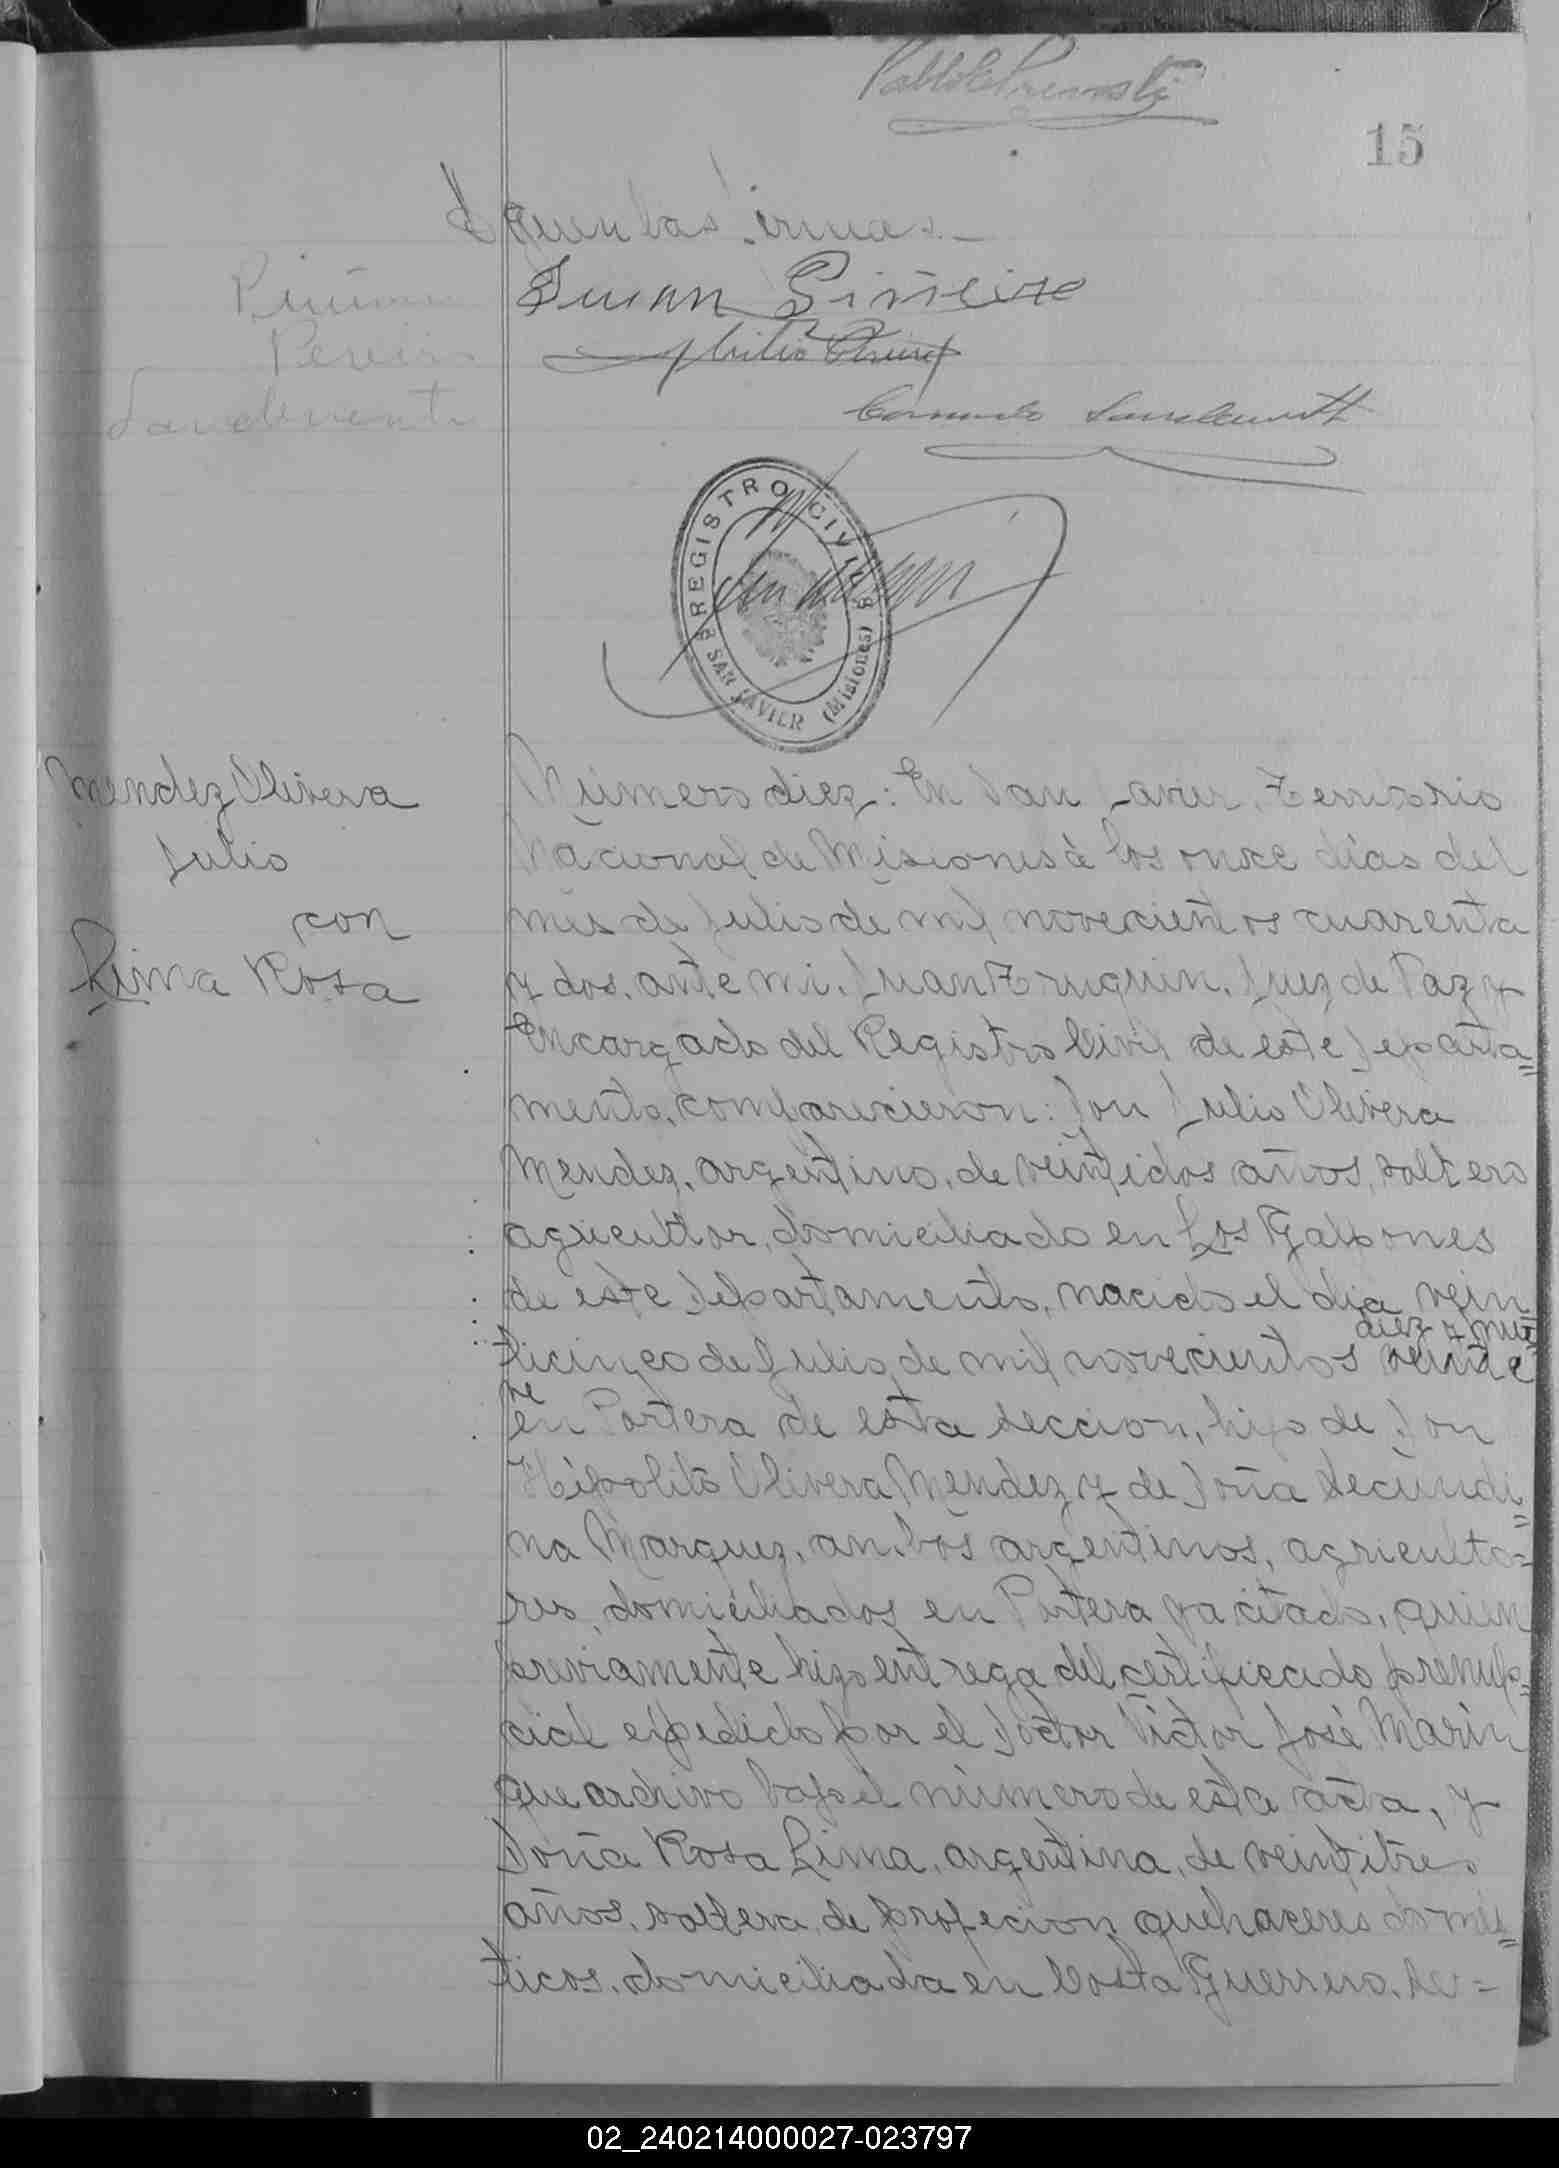 15
Siguen las firmas.-
Piñeiro
Juan Piñeiro
Pereira
Sandemente
REGISTRO CIVIL
SAN JAVIER (Misiones)
Mendez Olivera
Julio
con
Lima Rosa
Número diez: En San Javier, Territorio
Nacional de Misiones á los once días del
mes de Julio de mil novecientos cuarenta
y dos, ante mi, Juan Truquin, Juez de Paz y
Encargado del Registro Civil de este Departa=
mento, comparecieron: Don Julio Olivera
Mendez, argentino, de veintidos años, soltero
agricultor, domiciliado en Los Galpones
de este Departamento, nacido el dia vein
diez y nue
ticinco de Julio de mil novecientos veinte
ve
en Portera de esta seccion, hijo de Don
Hipolito Olivera Mendez y de Doña Secundi=
na Marquez, ambos argentinos, agriculto=
res, domiciliados en Portera ya citado, quien
previamente hizo entrega del certificado prenup=
cial expedido por el Doctor Victor José Marin
que archivo bajo el número de esta acta, y
Doña Rosa Lima, argentina, de veintitres
años, soltera, de profecion quehaceres domes=
ticos, domiciliada en Costa Guerrero, de=
02_240214000027-023797